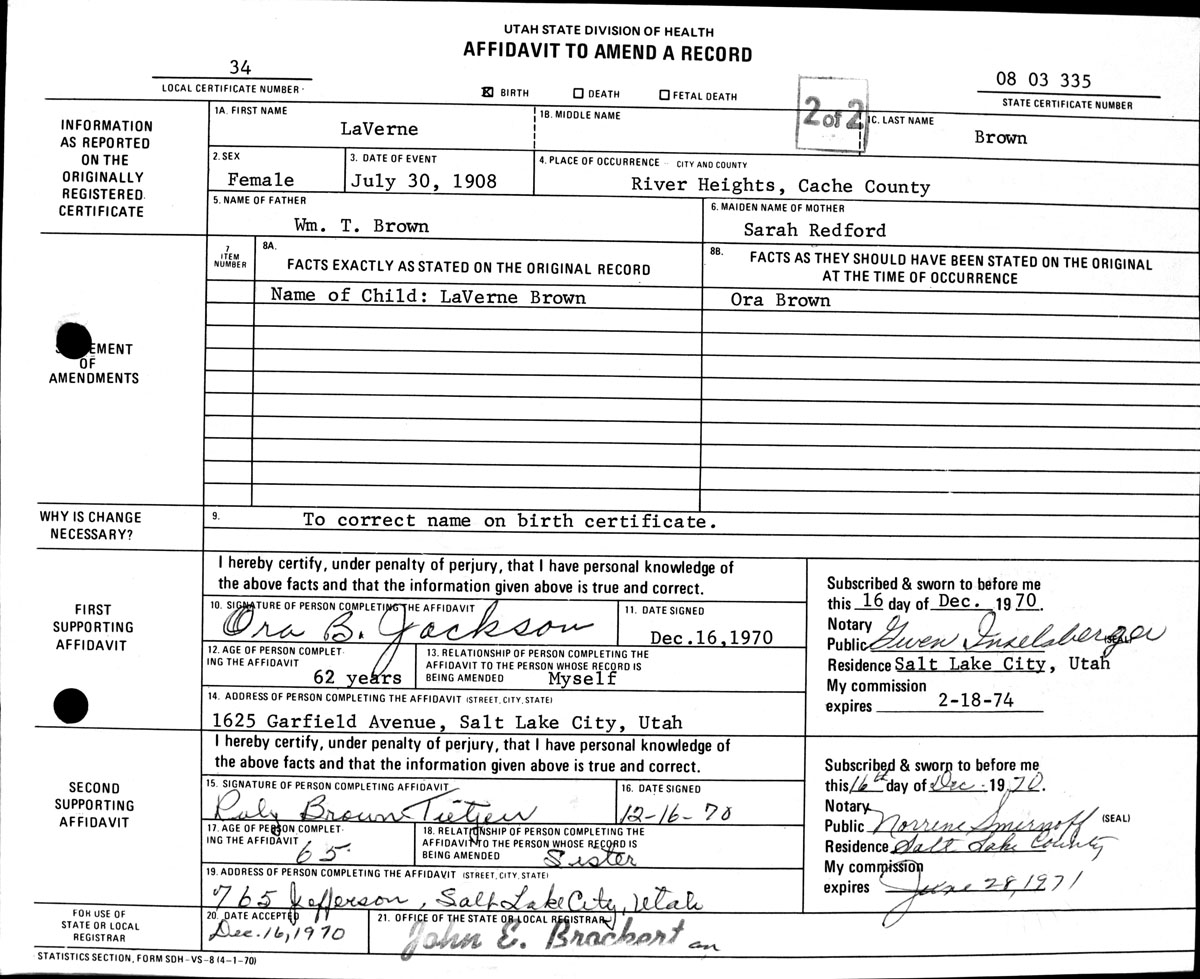 UTAH STATE DIVISION OF HEALTH
AFFIDAVIT TO AMEND A RECORD
34
LOCAL CERTIFICATE NUMBER
☒ BIRTH ☐ DEATH ☐ FETAL DEATH
2 of 2
08 03 335
STATE CERTIFICATE NUMBER
INFORMATION AS REPORTED ON THE ORIGINALLY REGISTERED CERTIFICATE
1A. FIRST NAME 1B. MIDDLE NAME 1C. LAST NAME
LaVerne Brown
2. SEX 3. DATE OF EVENT 4. PLACE OF OCCURRENCE - CITY AND COUNTY
Female July 30, 1908 River Heights, Cache County
5. NAME OF FATHER 6. MAIDEN NAME OF MOTHER
Wm. T. Brown Sarah Redford
7 ITEM NUMBER
8A. FACTS EXACTLY AS STATED ON THE ORIGINAL RECORD
8B. FACTS AS THEY SHOULD HAVE BEEN STATED ON THE ORIGINAL
AT THE TIME OF OCCURRENCE
Name of Child: LaVerne Brown Ora Brown
EMENT
OF
AMENDMENTS
WHY IS CHANGE
NECESSARY?
9. To correct name on birth certificate.
FIRST
SUPPORTING
AFFIDAVIT
I hereby certify, under penalty of perjury, that I have personal knowledge of
the above facts and that the information given above is true and correct.
10. SIGNATURE OF PERSON COMPLETING THE AFFIDAVIT 11. DATE SIGNED
Ora B. Jackson Dec.16,1970
12. AGE OF PERSON COMPLET-
ING THE AFFIDAVIT
62 years
13. RELATIONSHIP OF PERSON COMPLETING THE
AFFIDAVIT TO THE PERSON WHOSE RECORD IS
BEING AMENDED Myself
14. ADDRESS OF PERSON COMPLETING THE AFFIDAVIT (STREET, CITY, STATE)
1625 Garfield Avenue, Salt Lake City, Utah
Subscribed & sworn to before me
this 16 day of Dec. 1970.
Notary
Public Gwen Inselsberger (SEAL)
Residence Salt Lake City, Utah
My commission
expires 2-18-74
SECOND
SUPPORTING
AFFIDAVIT
I hereby certify, under penalty of perjury, that I have personal knowledge of
the above facts and that the information given above is true and correct.
15. SIGNATURE OF PERSON COMPLETING AFFIDAVIT 16. DATE SIGNED
Brown Tietjen 12-16-70
17. AGE OF PERSON COMPLET-
ING THE AFFIDAVIT
65
18. RELATIONSHIP OF PERSON COMPLETING THE
AFFIDAVIT TO THE PERSON WHOSE RECORD IS
BEING AMENDED Sister
19. ADDRESS OF PERSON COMPLETING THE AFFIDAVIT (STREET, CITY, STATE)
765 Jefferson, Salt Lake City, Utah
Subscribed & sworn to before me
this 16th day of Dec. 1970.
Notary
Public Norrene Smirnoff (SEAL)
Residence Salt Lake County
My commission
expires June 28, 1971
FOR USE OF
STATE OR LOCAL
REGISTRAR
20. DATE ACCEPTED 21. OFFICE OF THE STATE OR LOCAL REGISTRAR
Dec. 16, 1970 John E. Brockert an
STATISTICS SECTION, FORM SDH-VS-8 (4-1-70)